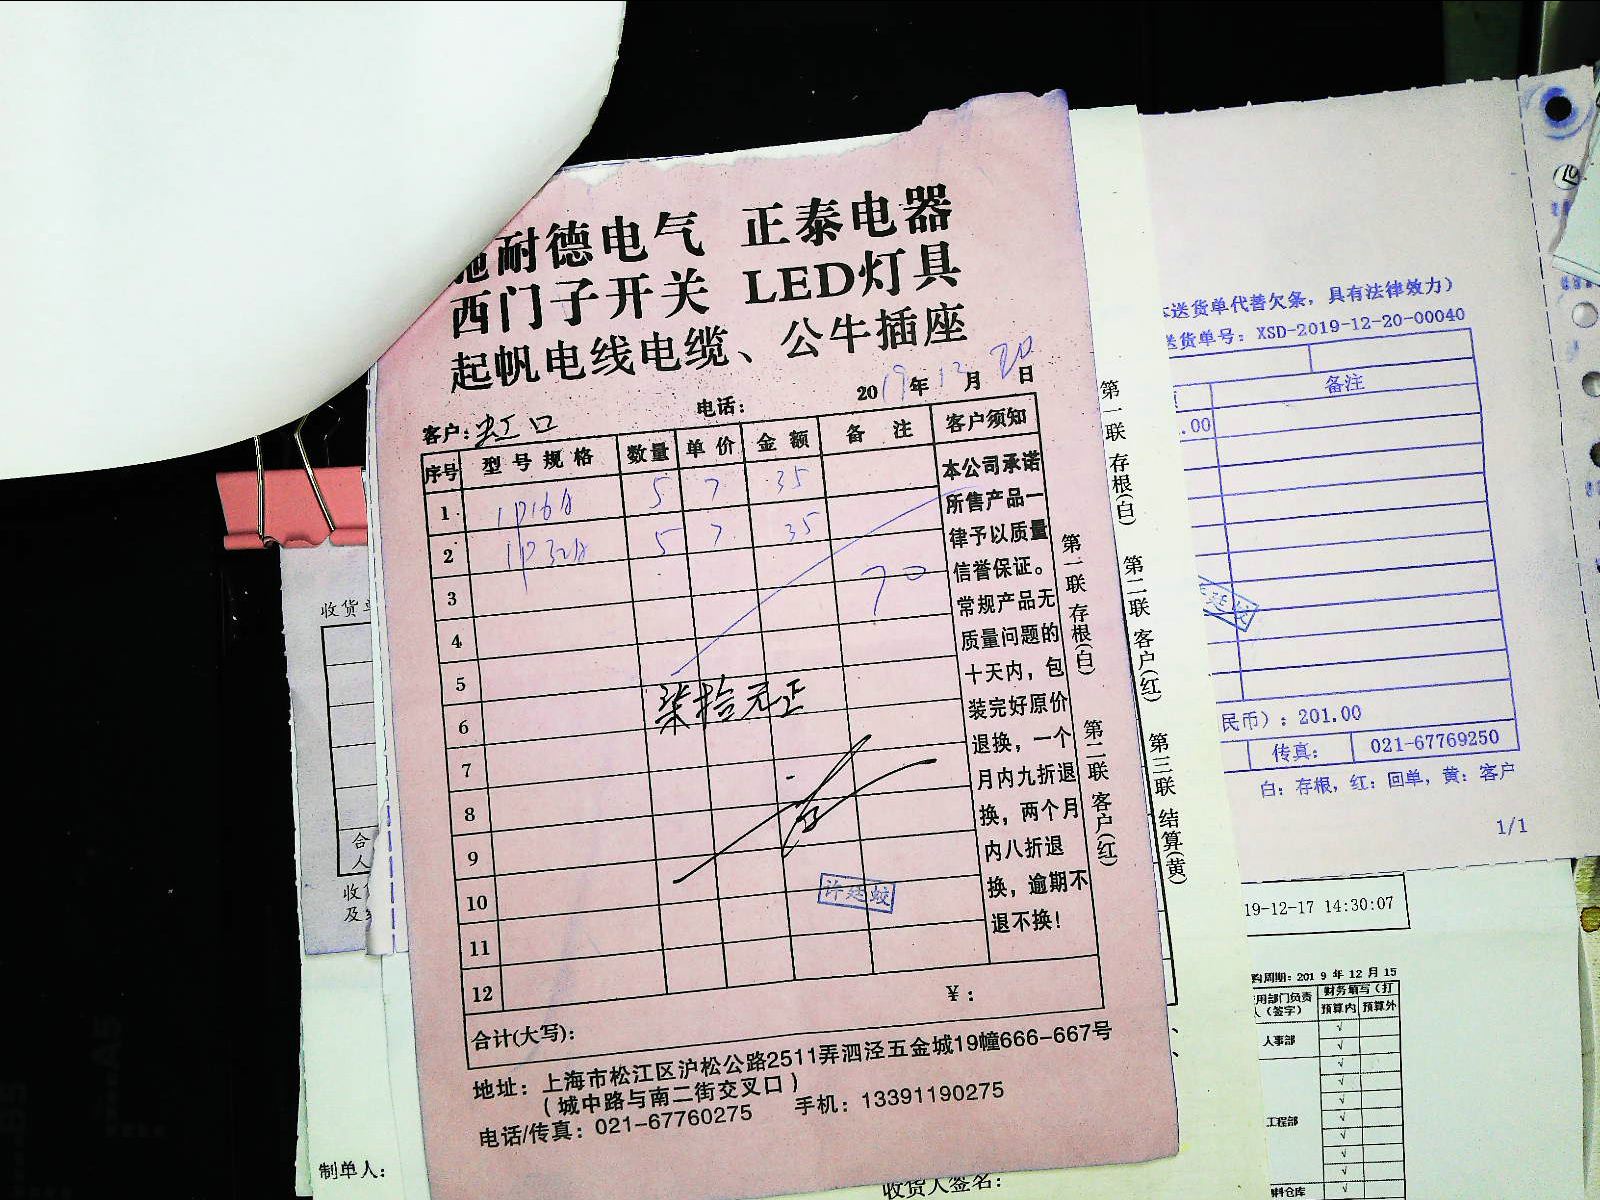 施耐德电气 正泰电器
西门子开关 LED灯具
起帆电线电缆、公牛插座
电话: 2019年12月20日
客户: 虹口
序号 型号规格 数量 单价 金额 备注 客户须知
1 1P16A 5 7 35
2 1P32A 5 7 35
3 70
4
5
6 柒拾元正
7
8
9
10
11
12
许廷蛟
本公司承诺
所售产品一
律予以质量
信誉保证。
常规产品无
质量问题的
十天内，包
装完好原价
退换，一个
月内九折退
换，两个月
内八折退
换，逾期不
退不换!
¥:
合计(大写):
地址: 上海市松江区沪松公路2511弄泗泾五金城19幢666-667号
(城中路与南二街交叉口)
电话/传真: 021-67760275 手机: 13391190275
第一联 存根(白) 第二联 客户(红)
第一联 存根(白) 第二联 客户(红) 第三联 结算(黄)
送货单代替欠条，具有法律效力)
送货单号: XSD-2019-12-20-00040
备注
.00
民币): 201.00
传真: 021-67769250
白: 存根, 红: 回单, 黄: 客户
1/1
19-12-17 14:30:07
购周期: 2019 年 12 月 15
用部门负责
人(签字)
财务填写(打
预算内 预算外
人事部
工程部
料仓库
收货单
合
人
收
及
制单人:
收货人签名: